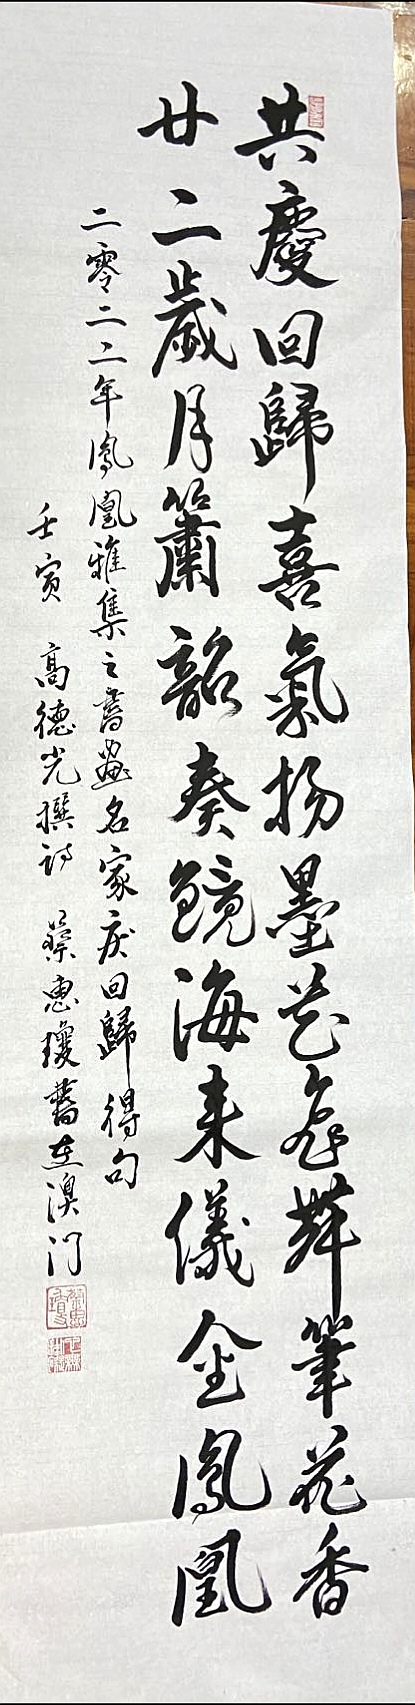 共慶回歸喜氣扬墨花飛舞筆花香
廿二歲月簫韶奏鏡海来儀金鳳凰
二零二二年鳳凰雅集之書畫名家庆回歸得句
壬寅 高德光撰诗 蔡惠瓊書在澳门